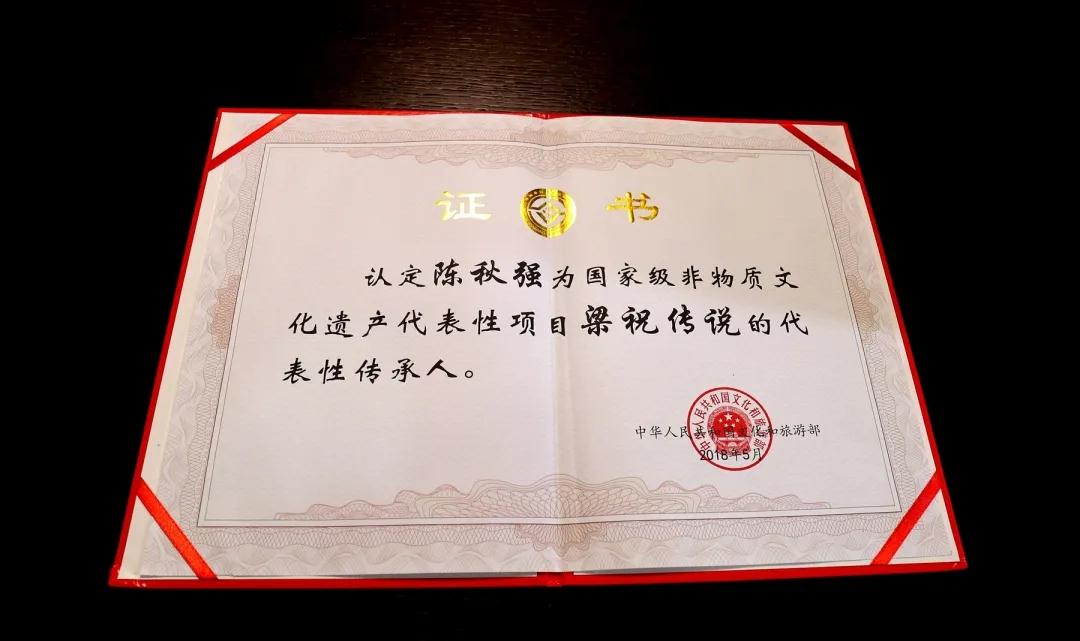 证书
认定陈秋强为国家级非物质文
化遗产代表性项目梁祝传说的代
表性传承人。
中华人民共和国文化和旅游部
中华人民共和国文化和旅游部
2018年5月